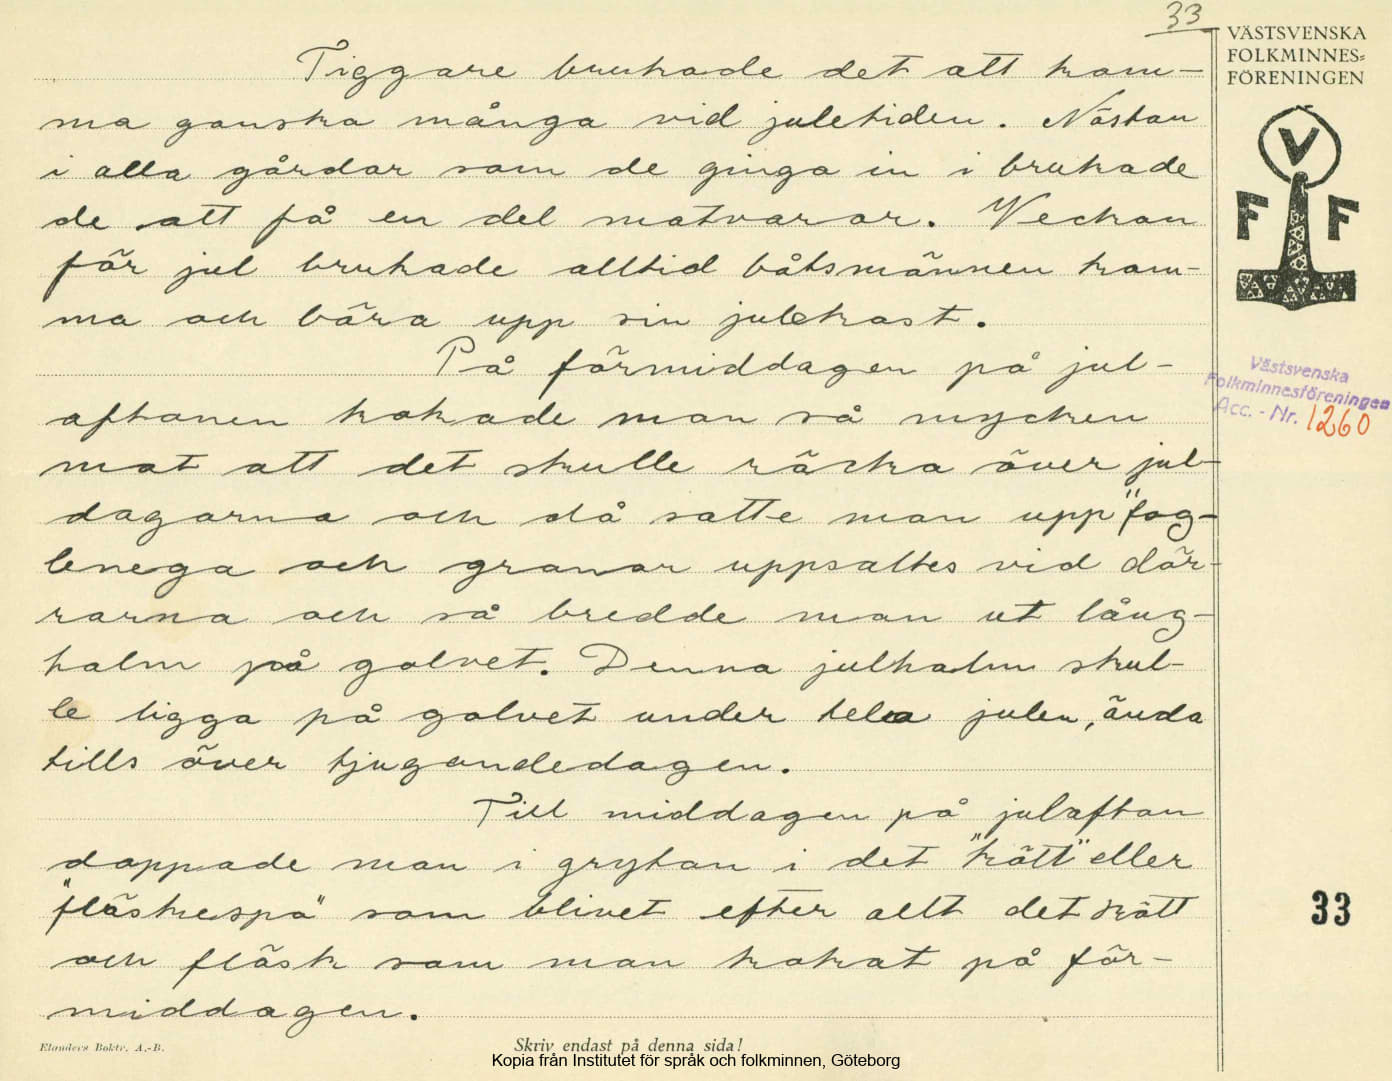 33
VÄSTSVENSKA
FOLKMINNES=
FÖRENINGEN
Tiggare brukade det att kom-
ma ganska många vid juletiden. Nästan
i alla gårdar som de ginga in i brukade
de att få en del matvaror. Veckan
för jul brukade alltid båtsmännen kom-
ma och bära upp sin julekost.
På förmiddagen på jul-
aftonen kokade man så mycken
mat att det skulle räcka över jul-
dagarna och då satte man upp "fog-
lenega och granar uppsattes vid dör-
rarna och så bredde man ut lång-
halm på golvet. Denna julhalm skul-
le ligga på golvet under hela julen, ända
tills över tjugondedagen.
Till middagen på julafton
doppade man i grytan i det "kött" eller
"fläskespa" som blivet efter allt det kött
och fläsk som man kokat på för-
middagen.
V
F F
Västsvenska
Folkminnesföreningen
Acc. - Nr. 1260
33
Elanders Boktr. A.-B.
Skriv endast på denna sida!
Kopia från Institutet för språk och folkminnen, Göteborg